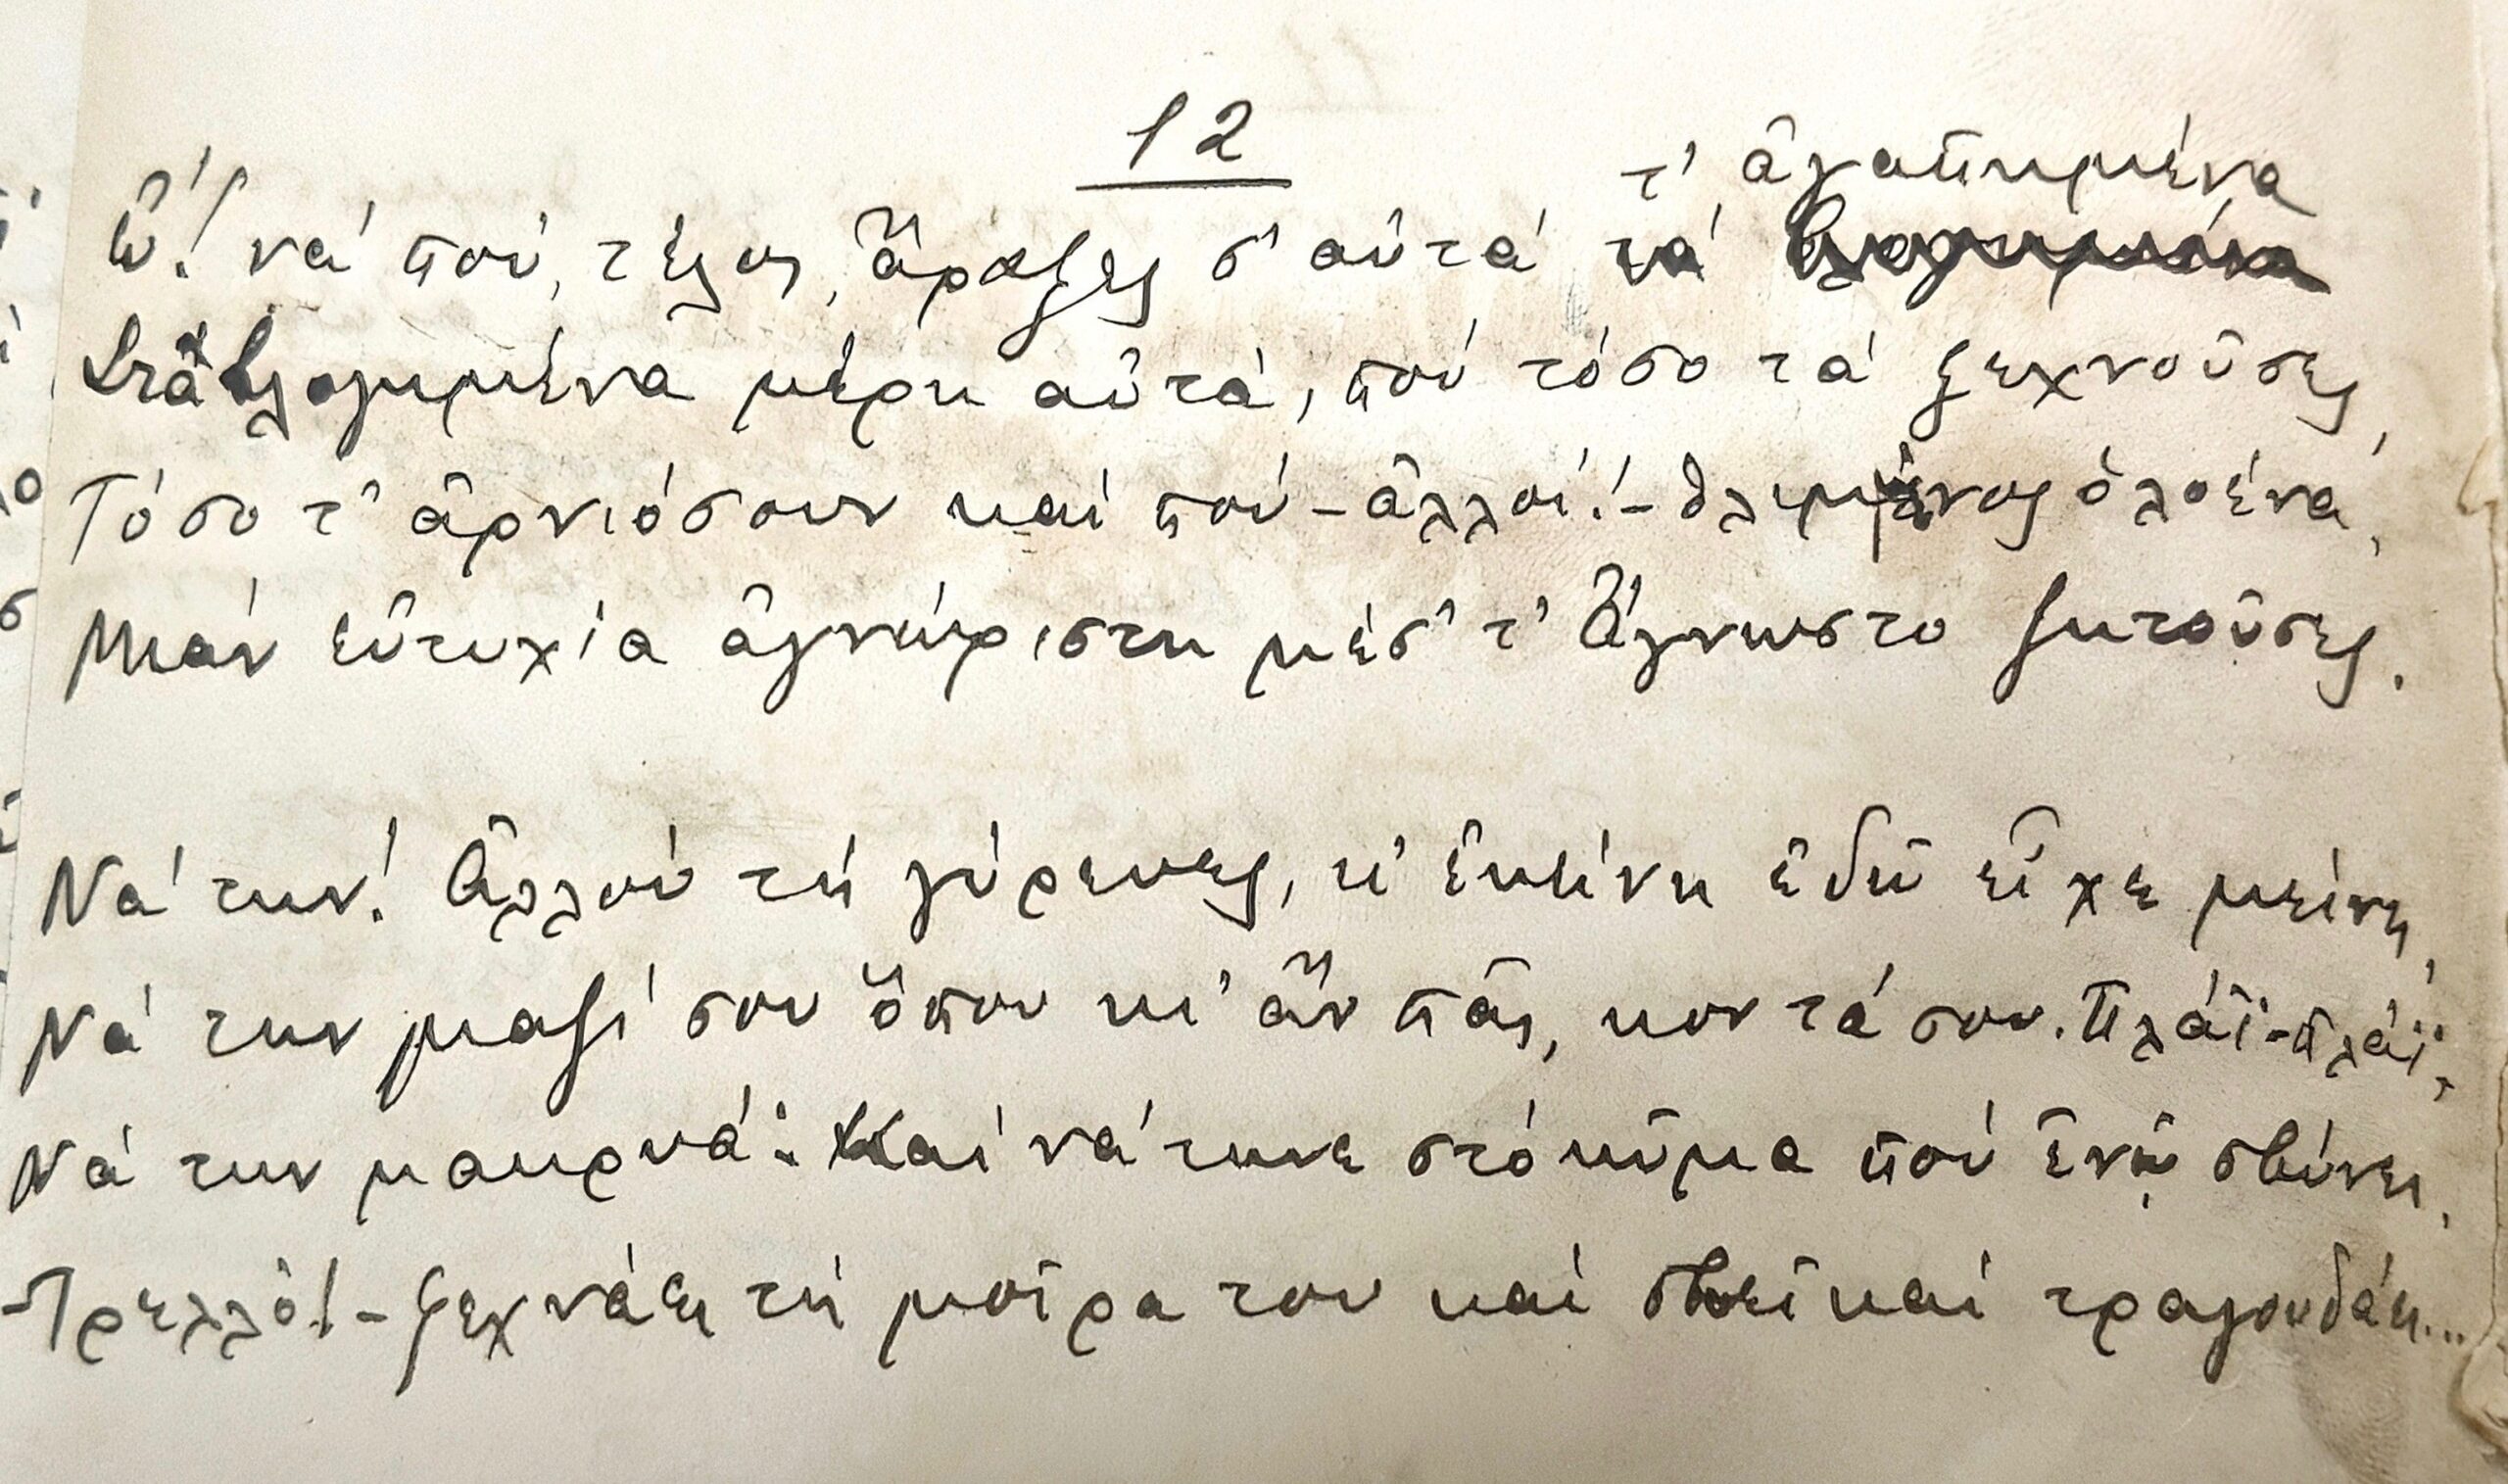 12
τ' ἀγαπημένα
Ὤ! νά ποὺ, τέλος, ἄραξες σ' αὐτὰ τὰ
Στὰ εὐλογημένα μέρη αὐτά, ποὺ τόσο τὰ ξεχνοῦσες,
Τόσο τ' ἀρνιόσουν καὶ ποὺ - ἀλλοί! - θλιμμένος ὁλοένα,
Μιὰν εὐτυχία ἀγνώριστη μέσ' τ' Ἄγνωστο ζητοῦσες.
Νά την! Ἀλλοῦ τὴ γύρευες, κ' ἐκείνη ἐδῶ εἶχε μείνει,
Νά την μαζί σου ὅπου κι' ἂν πᾶς, κοντά σου. Πλάϊ-πλάϊ,
Νά την μακρυά: Καὶ νά τηνε στὸ κῦμα ποὺ ἐνῷ σβύνει,
-Τρελλό! - ξεχνάει τὴ μοῖρα του καὶ σβεῖ καὶ τραγουδάει...